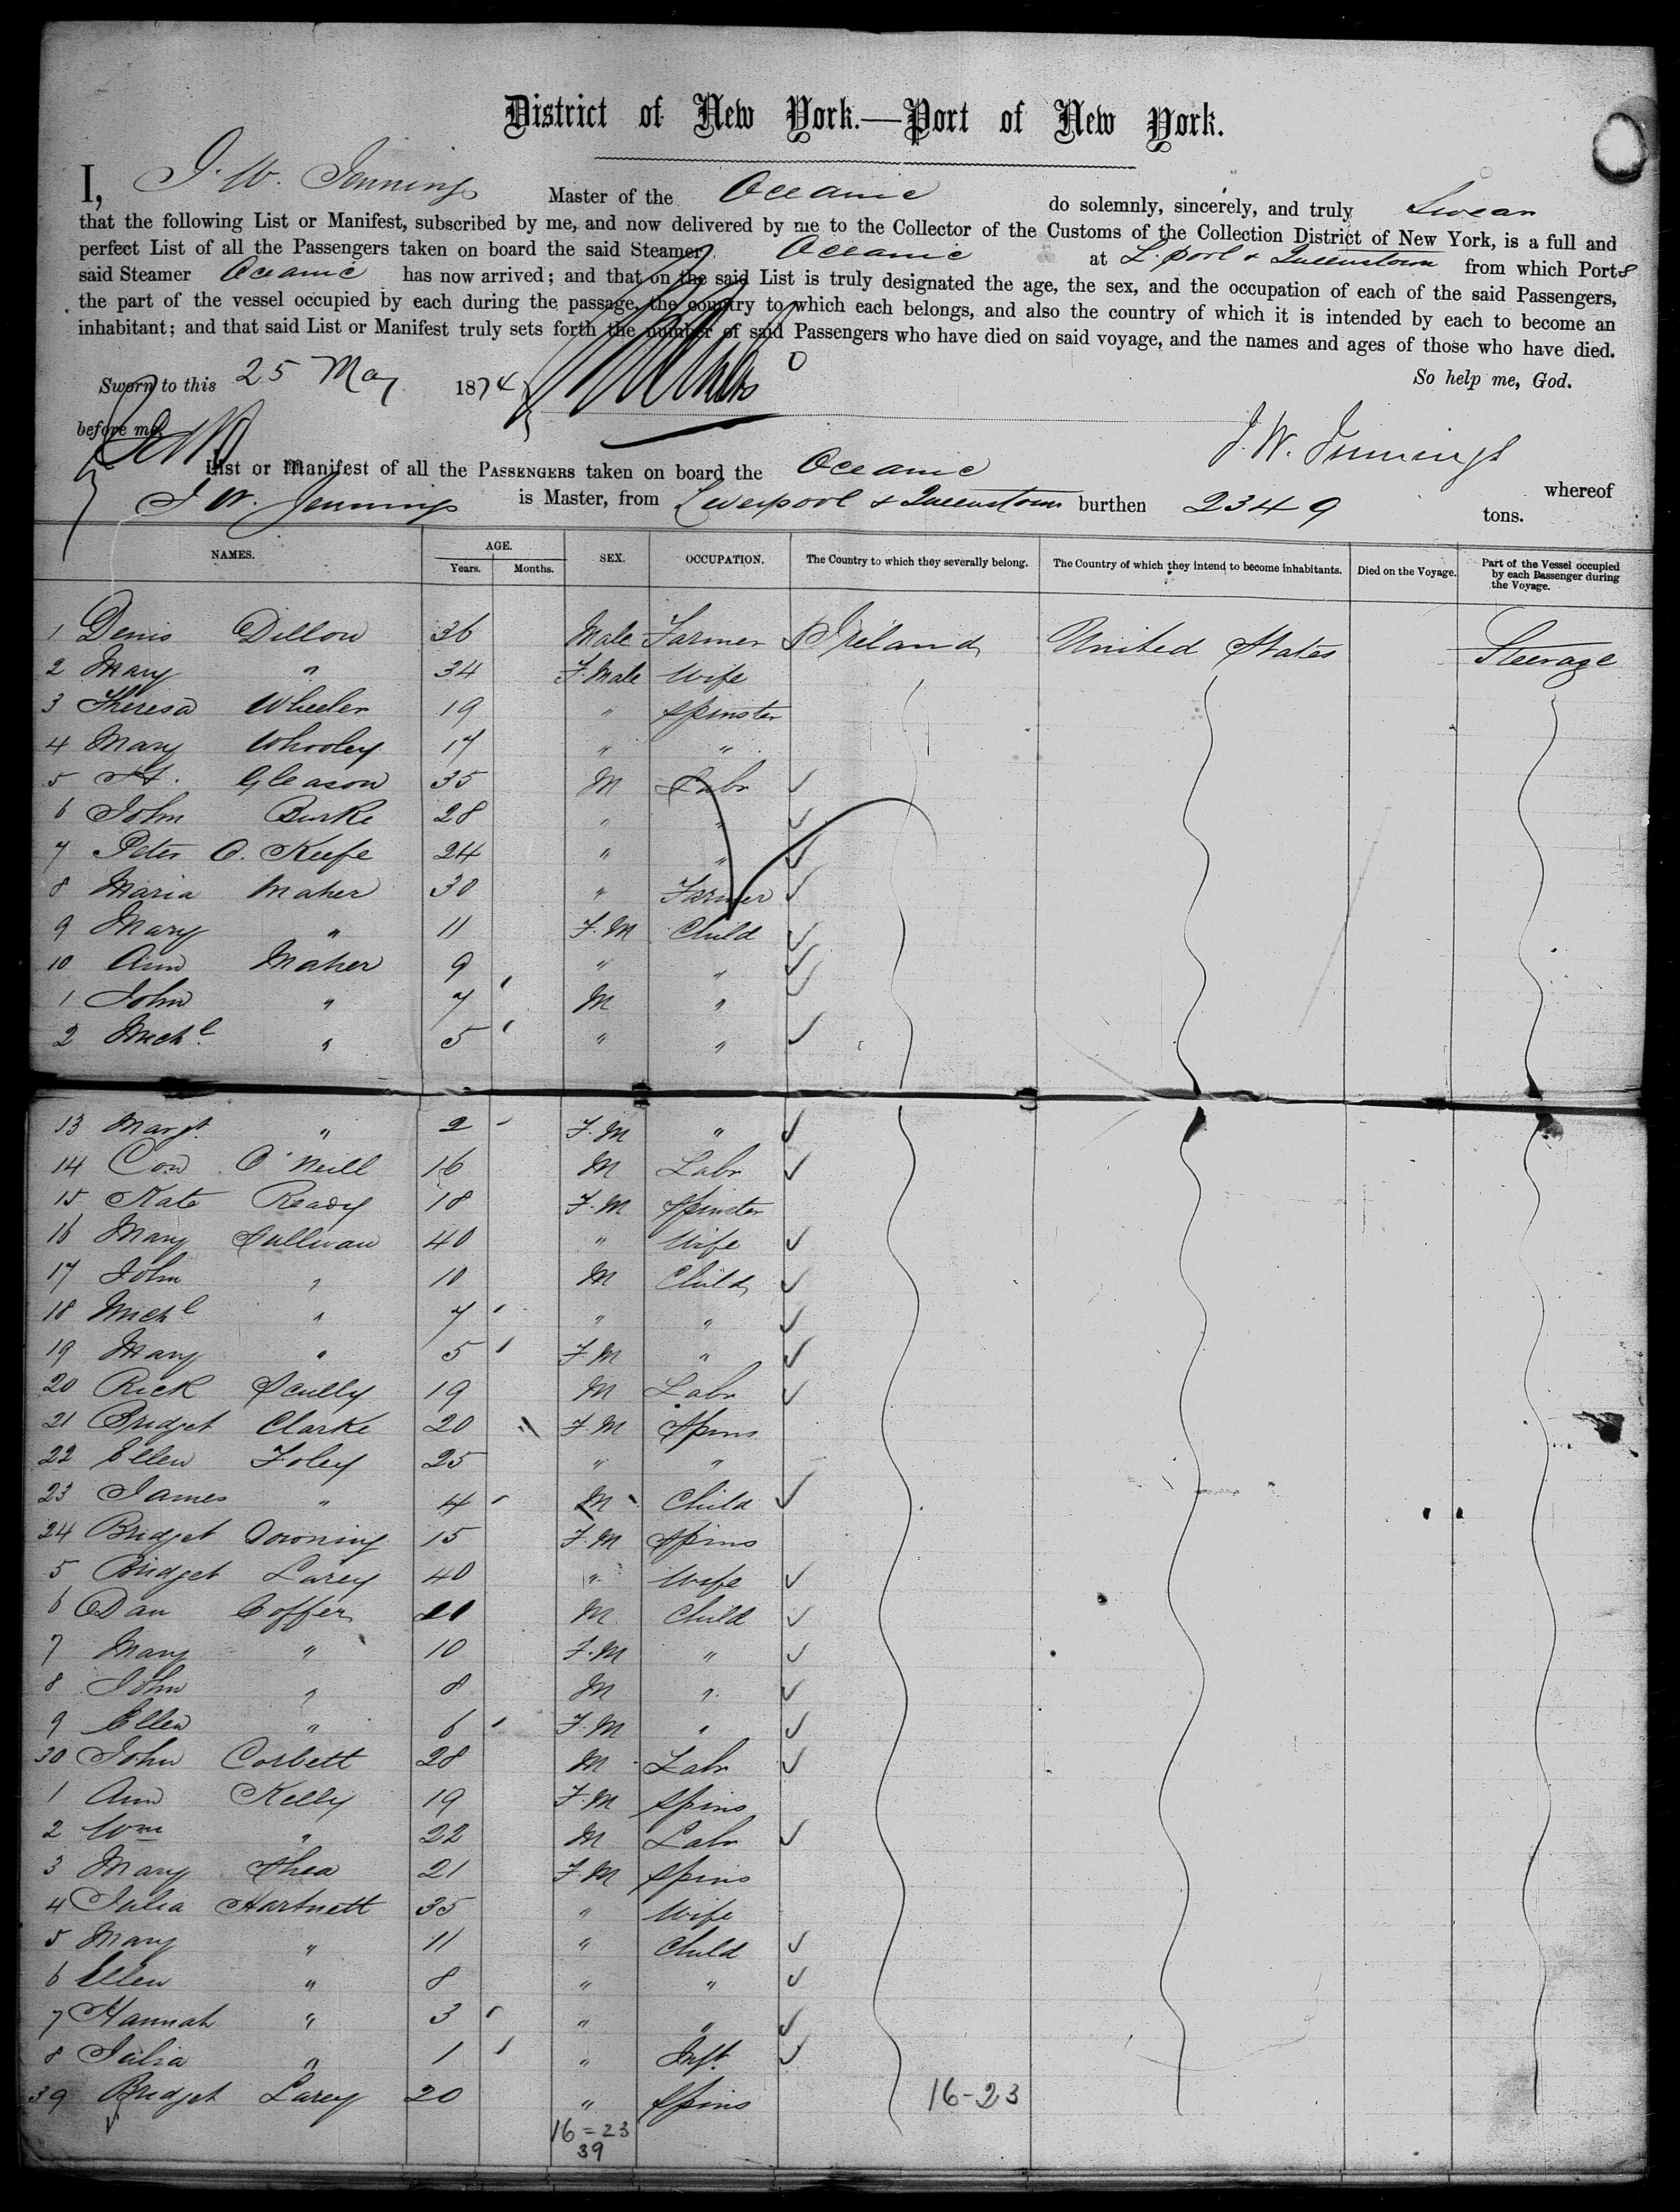 District of New York.—Port of New York.
I, J. W. Jennings Master of the Oceanic do solemnly, sincerely, and truly Swear
that the following List or Manifest, subscribed by me, and now delivered by me to the Collector of the Customs of the Collection District of New York, is a full and
perfect List of all the Passengers taken on board the said Steamer Oceanic at L.pool & Queenstown from which Ports
said Steamer Oceanic has now arrived; and that on the said List is truly designated the age, the sex, and the occupation of each of the said Passengers,
the part of the vessel occupied by each during the passage, the country to which each belongs, and also the country of which it is intended by each to become an
inhabitant; and that said List or Manifest truly sets forth the number of said Passengers who have died on said voyage, and the names and ages of those who have died.
So help me, God.
Sworn to this 25 May 1874
before me,
J. W. Jennings
List or Manifest of all the PASSENGERS taken on board the Oceanic whereof
J W. Jennings is Master, from Liverpool & Queenstown burthen 2349 tons.
NAMES. AGE. Years. Months. SEX. OCCUPATION. The Country to which they severally belong. The Country of which they intend to become inhabitants. Died on the Voyage. Part of the Vessel occupied by each Passenger during the Voyage.
1 Denis Dillon 36 Male Farmer Ireland United States Steerage
2 Mary " 34 F.Male Wife
3 Theresa Wheeler 19 " Spinster
4 Mary Whooley 17 " "
5 Gleason 35 M Labr
6 John Burke 28 " "
7 Peter O. Keefe 24 " "
8 Maria Maher 30 " Farmer
9 Mary " 11 F.M Child
10 Ann Maher 9 " "
1 John " 7 M "
2 Michl " 5 " "
13 Margt " 2 F.M "
14 Con O'Neill 16 M Labr
15 Kate Ready 18 F.M Spinster
16 Mary Sullivan 40 " Wife
17 John " 10 M Child
18 Michl " 7 " "
19 Mary " 5 F.M "
20 Rick Scully 19 M Labr
21 Bridget Clarke 20 F.M Spins
22 Ellen Foley 25 " "
23 James " 4 M Child
24 Bridget Downing 15 F.M Spins
5 Bridget Carey 40 " Wife
6 Dan Coffer M Child
7 Mary " 10 F.M "
8 John " 8 M "
9 Ellen " 6 F.M "
30 John Corbett 28 M Labr
1 Ann Kelly 19 F.M Spins
2 Wm " 22 M Labr
3 Mary Shea 21 F.M Spins
4 Julia Hartnett 35 " Wife
5 Mary " 11 " Child
6 Ellen " 8 " "
7 Hannah " 3 " "
8 Julia " 1 " Inft
39 Bridget Carey 20 " Spins 16-23
16=23
39